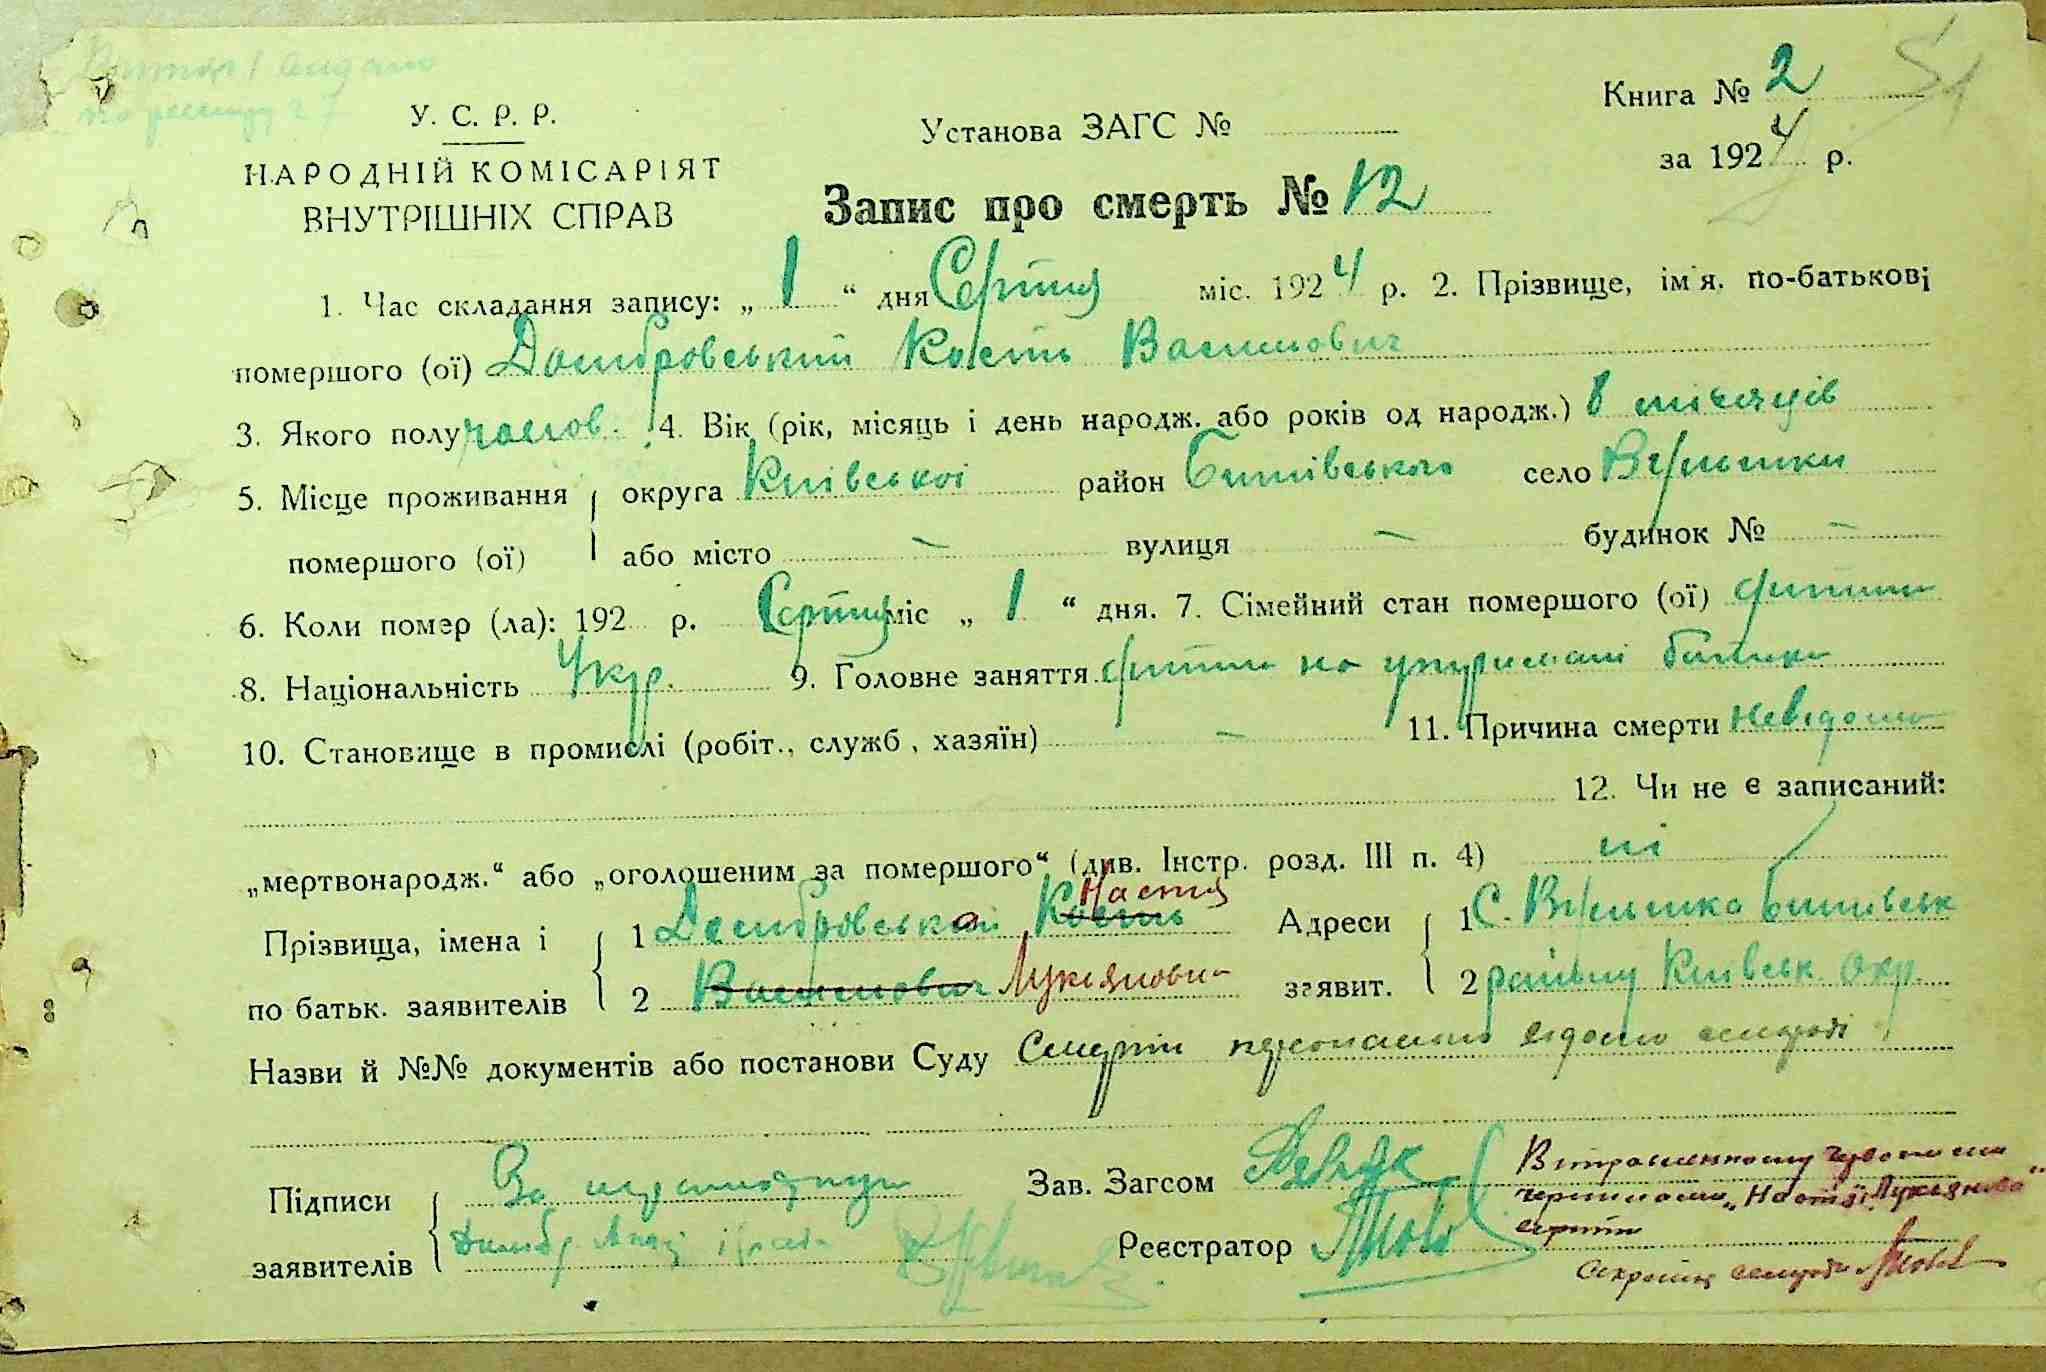 У. С. Р. Р.
НАРОДНІЙ КОМІСАРІЯТ
ВНУТРІШНІХ СПРАВ
Установа ЗАГС №
Книга № 2
за 1924 р.
Запис про смерть № 12
1. Час складання запису: „ 1 “ дня Серпня міс. 1924 р. 2. Прізвище, ім'я, по-батькові
помершого (ої) Домбровський Кость Васильович
3. Якого полу чолов. 4. Вік (рік, місяць і день народж. або років од народж.) 8 місяців
5. Місце проживання округа Київської район Бишівського село Вульшки
помершого (ої) або місто — вулиця — будинок № —
6. Коли помер (ла): 192 р. Серпня міс „ 1 “ дня. 7. Сімейний стан помершого (ої) дитина
8. Національність Укр. 9. Головне заняття дитина на утриманні батька
10. Становище в промислі (робіт., служб, хазяїн) — 11. Причина смерти невідома
12. Чи не є записаний:
„мертвонародж.“ або „оголошеним за помершого“ (див. Інстр. розд. III п. 4) ні
Настя
Прізвища, імена і 1 Домбровська Кость Адреси 1 С. Бишівськ
по батьк. заявителів 2 Васильович Лукьянович заявит. 2 району Київськ. Окр.
Назви й №№ документів або постанови Суду Смерть відомо
Підписи За неграмотную Зав. Загсом
заявителів Домбр. Реєстратор
„Настя Лукьянова“